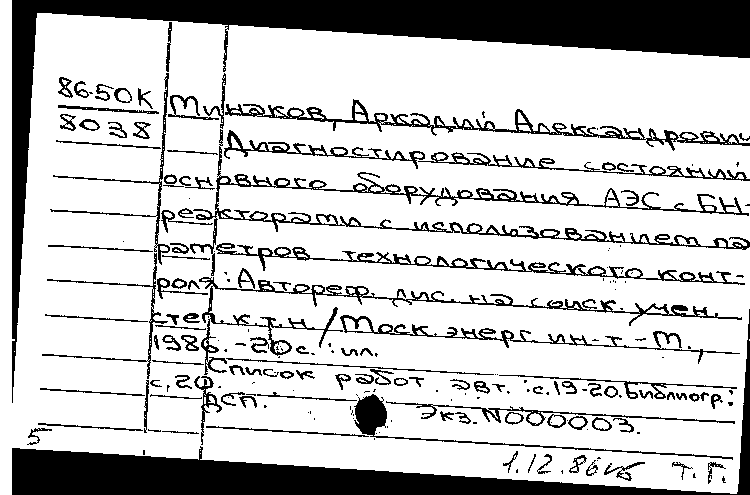 86-50К
8038
Минаков, Аркадий Александрович
Диагностирование состояний
основного оборудования АЭС с БН-
реакторами с использованием па
раметров технологического конт-
роля: Автореф. дис. на соиск. учен.
степ. к.т.н. / Моск. энерг. ин-т. - М.,
1986. - 20 с. : ил.
Список работ авт.: с. 19-20. Библиогр.:
с. 20.
ДСП. Экз. N000003.
5
1.12.86 Т. Г.